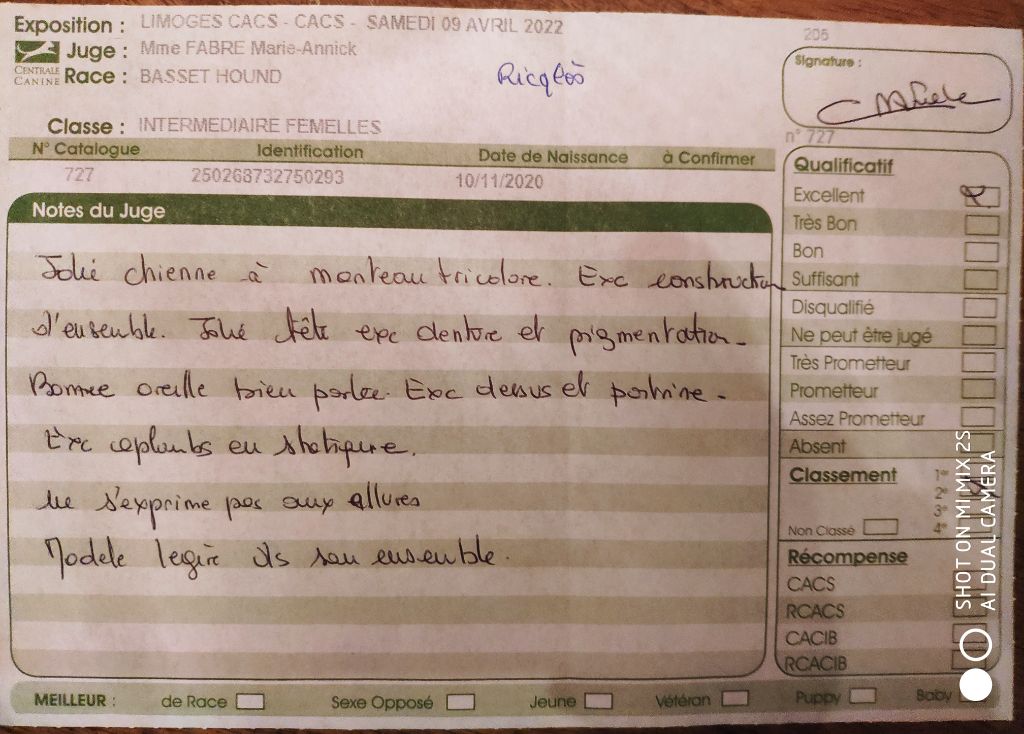 Exposition : LIMOGES CACS - CACS - SAMEDI 09 AVRIL 2022
Juge : Mme FABRE Marie-Annick
CENTRALE CANINE
Race : BASSET HOUND
Classe : INTERMEDIAIRE FEMELLES
205
Signature :
n° 727
N° Catalogue Identification Date de Naissance à Confirmer
727 250268732750293 10/11/2020
Notes du Juge
Jolie chienne à manteau tricolore. Exc construction
d'ensemble. Jolie tête exc denture et pigmentation.
Bonne oreille bien portée. Exc dessus et poitrine.
Exc aplombs en statique.
ne s'exprime pas aux allures
Modèle légère ds son ensemble.
Qualificatif
Excellent
Très Bon
Bon
Suffisant
Disqualifié
Ne peut être jugé
Très Prometteur
Prometteur
Assez Prometteur
Absent
Classement
1er
2e
3e
Non Classé 4e
Récompense
CACS
RCACS
CACIB
RCACIB
MEILLEUR : de Race Sexe Opposé Jeune Vétéran Puppy Baby
SHOT ON MI MIX 2S
AI DUAL CAMERA